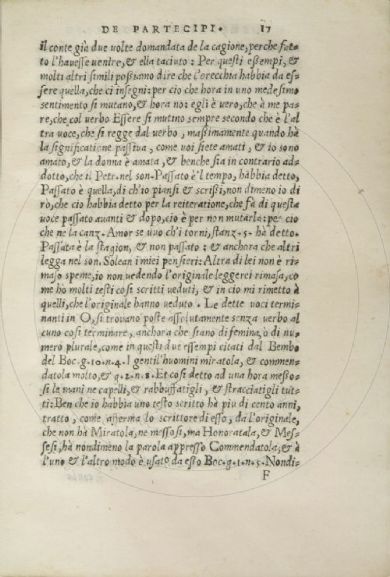 DE PARTECIPI. 17
il conte già due volte domandata de la cagione, perche fat-
to l'hauesse uenire, & ella taciuto : Per questi essempi, &
molti altri simili possiamo dire che l'orecchia habbia da es-
sere quella, che ci insegni: per cio che hora in uno medesimo
sentimento si mutano, & hora no: egli è uero, che à me pa-
re, che col uerbo Essere si mutino sempre secondo che è l'al
tra uoce, che si regge dal uerbo, massimamente quando hà
la significatione passiua, come uoi siete amati, & io sono
amato, & la donna è amata, & benche sia in contrario ad-
dotto, che il Petr. nel son. Passato è'l tempo, habbia detto,
Passato è quella, di ch'io piansi & scrissi, non dimeno io di
rò, che cio habbia detto per la reiteratione, che fà di questa
uoce passato auanti & dopo, cio è per non mutarla: per cio
che ne la canz. Amor se uuo ch'i torni, stanz. 5. hà detto.
Passata è la stagion, & non passato : & anchora che altri
legga nel son. Solean i miei pensieri: Altra di lei non è ri-
maso speme, io non uedendo l'originale leggerei rimasa, co
me hò molti testi cosi scritti ueduti, & in cio mi rimetto à
quelli, che l'originale hanno ueduto. Le dette uoci termi-
nanti in O, si trouano poste assolutamente senza uerbo al
cuno cosi terminare, anchora che siano di femina, o di nu-
mero plurale, come in questi due essempi citati dal Bembo
del Boc. g. 10. n. 4. I gentil'huomini miratola, & commen-
datola molto, & g. 2. n. 8. Et cosi detto ad una hora messo-
si le mani ne capelli, & rabbuffatigli, & stracciatigli tut-
ti: Ben che io habbia uno testo scritto hà piu di cento anni,
tratto, come afferma lo scrittore di esso, da l'originale,
che non hà Miratola, ne messosi, ma Honoratala, & Mes-
sesi, hà nondimeno la parola appresso Commendatola, & à
l'uno & l'altro modo è usato da esso Boc. g. 1. n. 5. Nondi-
F